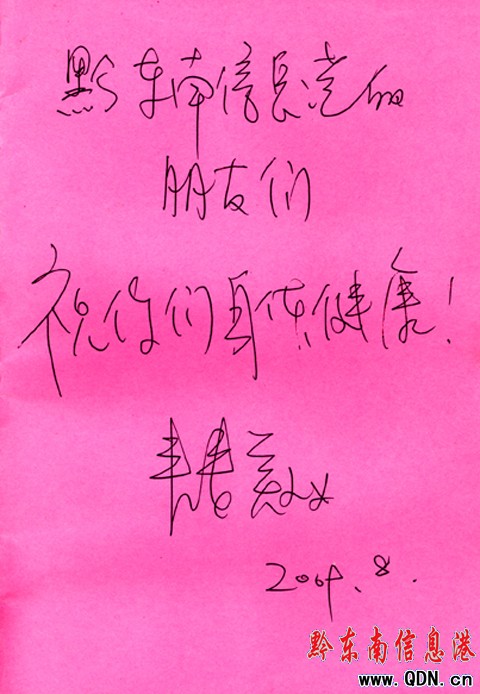 黔东南信息港的
朋友们
祝你们身体健康！
2004.8.
黔东南信息港
www.QDN.cn